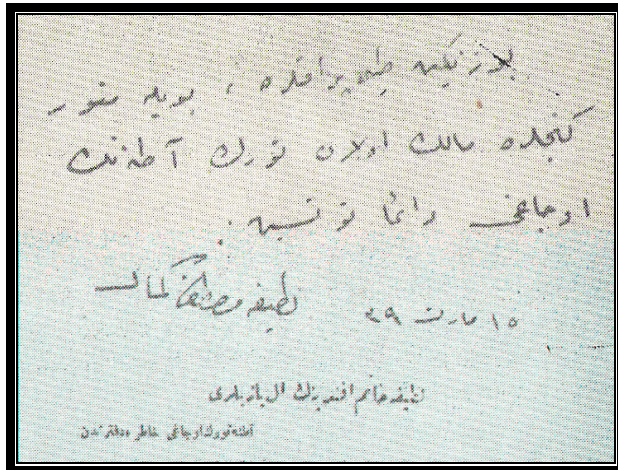 بو زنكين طوپراقلره ، بويله منور
كنجلره مالك اولان تورك آطه‌نك
اوجاغى دائما توتسين .
لطيفه مصطفى كمال
١٥ مارت ٣٩
لطيفه خانم افنديزك ال يازيلرى
آطنه تورك اوجاغى خاطره دفترندن